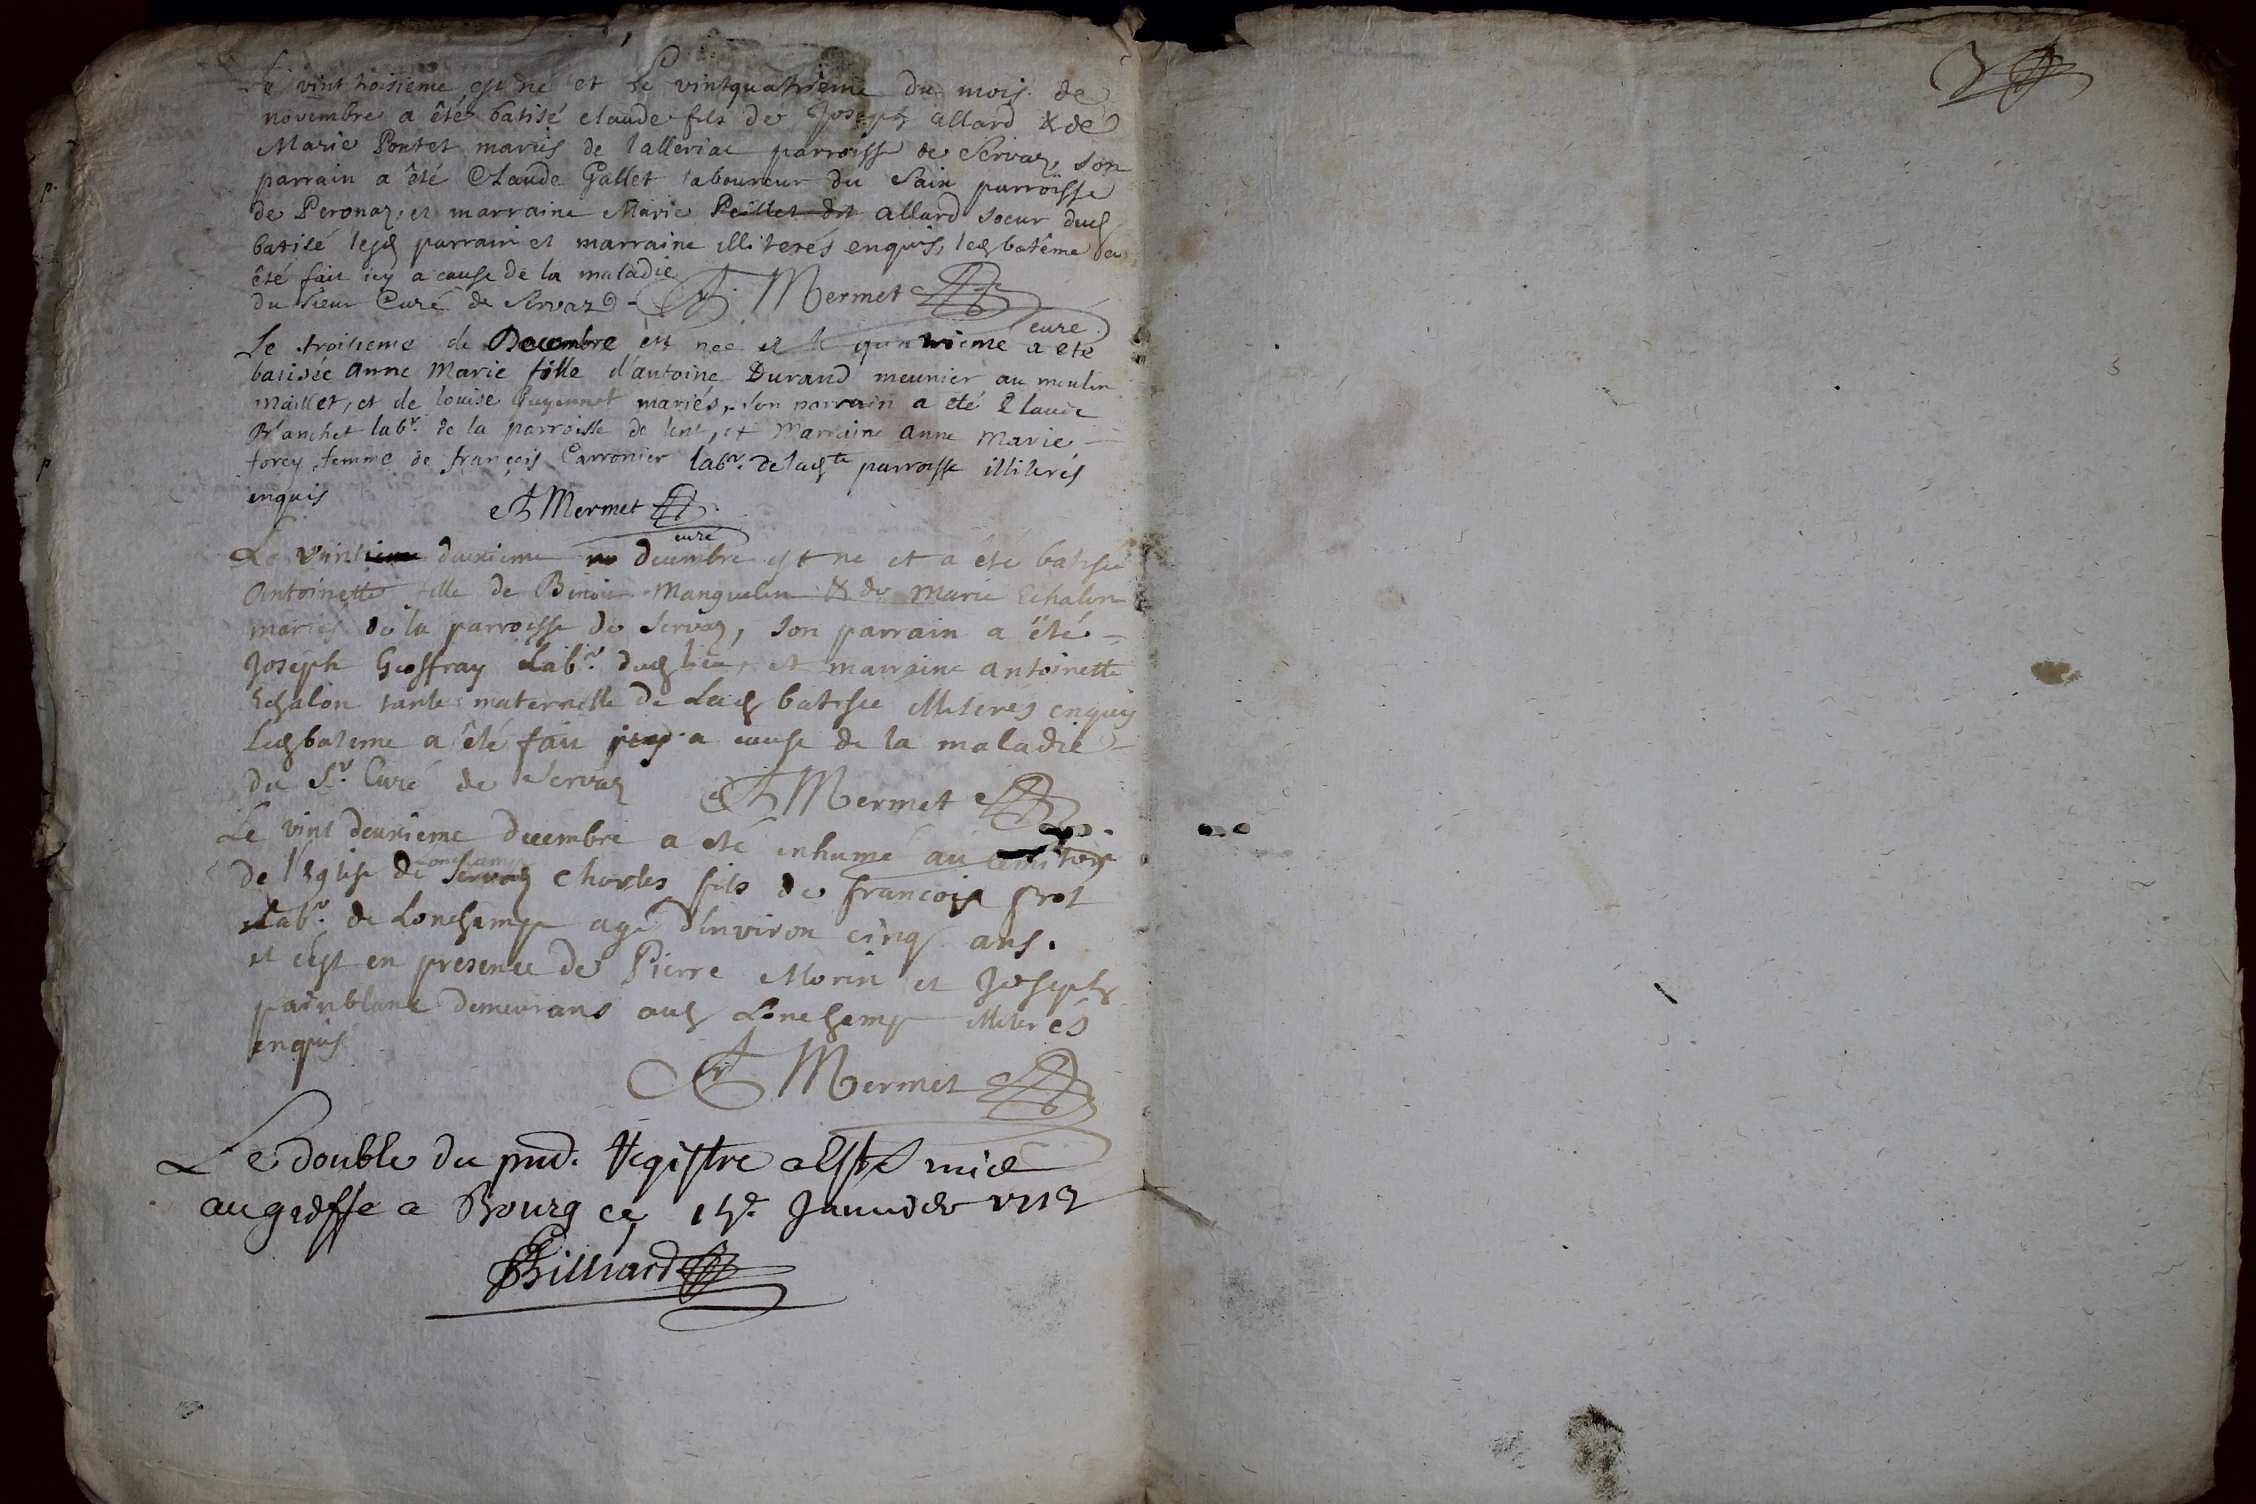 Le vint troisieme est né et Le vintquatrieme du mois de
novembre a êté batisé claude fils de Joseph allard & de
Marie Pontet mariés de lalleriat parroisse de Servaz, son
parrain a êté Claude Gallet laboureur du Sain parroisse
de Peronaz, et marraine Marie Peillet dit allard soeur dud
batisé lesd parrain et marraine illiterés enquis, led batême a
êté fait icy a cause de la maladie
du sieur Curé de Servaz Mermet
curé
Le troisieme de Decembre est née et le quatrieme a eté
batisée anne Marie fille d'antoine Durand meunier au moulin
maillet, et de louise Guyennet mariés, son parrain a eté Claude
Branchet labr. de la parroisse de lent, et Marraine anne Marie
forey femme de françois Carronier labr. de lad te parroisse illiterés
enquis Mermet
curé
Le vint deuxieme decembre est né et a été batisée
Antoinette fille de Benoit Manguelin & de Marie Echalon
mariés de la parroisse de Servaz, son parrain a été
Joseph Geoffray Labr. dud lieu, et marraine antoinette
Echalon tante maternelle de Lad batisée illiterés enquis
Led bateme a êté fait icy a cause de la maladie
du Sr. Curé de Servaz Mermet
Le vint deuxieme decembre a eté inhumé au cemitiere
Lonchamp
de l'Eglise de Servaz Charles fils de francois Prot
Labr. de Lonchamp agé d'Environ cinq ans.
et c'est en presence de Pierre Morin et Joseph
painblanc demeurans aud Lonchamp illiterés
enquis
Mermet
Le double du pnt. Registre a Esté mis
au greffe a Bourg ce Janvier 1713
Billiard